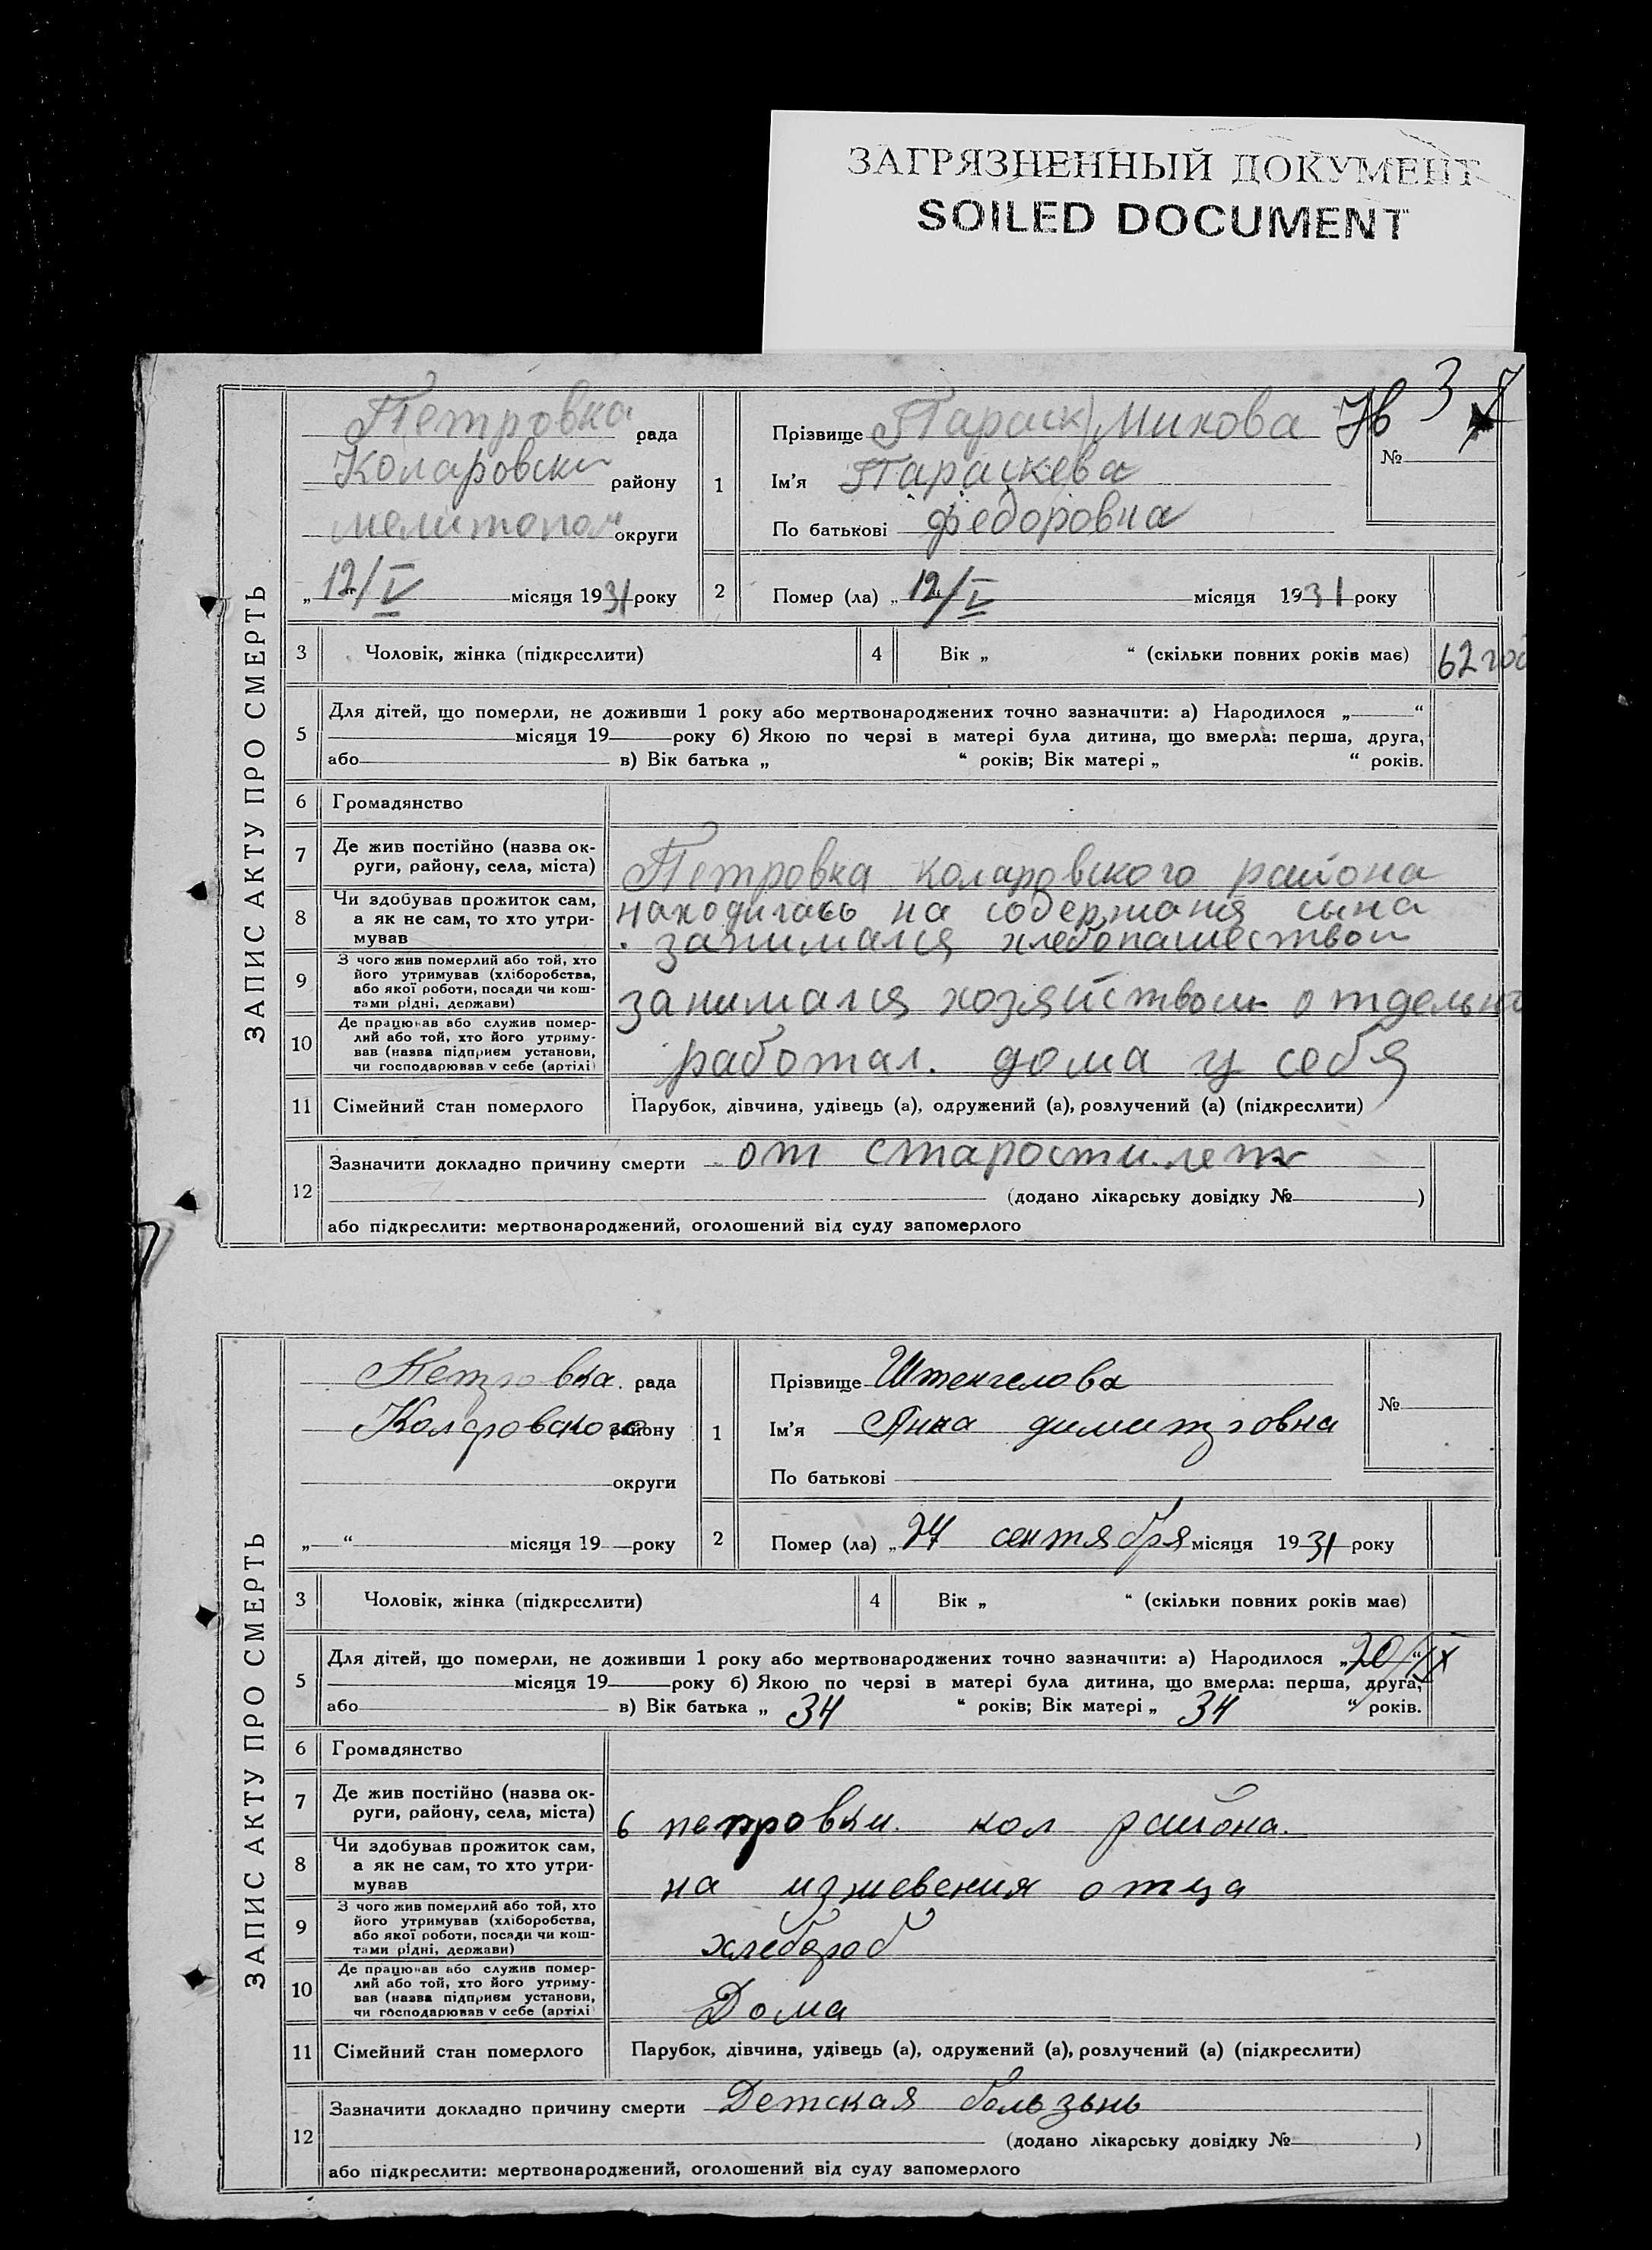 ЗАГРЯЗНЕННЫЙ ДОКУМЕНТ
SOILED DOCUMENT
ЗАПИС АКТУ ПРО СМЕРТЬ
Петровка рада
Коларовски району
мелитопол округи
„ 12/V місяця 1931 року
1
Прізвище Параск/Михова
Ім'я Параскева
По батькові федоровна
№
3
2
Помер (ла) „ 12/V місяця 1931 року
3
Чоловік, жінка (підкреслити)
4
Вік „ “ (скільки повних років має)
62 год
5
Для дітей, що померли, не доживши 1 року або мертвонароджених точно зазначити: а) Народилося „ “
місяця 19 року б) Якою по черзі в матері була дитина, що вмерла: перша, друга,
або в) Вік батька „ “ років; Вік матері „ “ років.
6
Громадянство
7
Де жив постійно (назва ок-
руги, району, села, міста)
Петровка коларовского района
8
Чи здобував прожиток сам,
а як не сам, то хто утри-
мував
находилась на содержания сына
занимался хлебопашеством
9
З чого жив померлий або той, хто
його утримував (хліборобства,
або якої роботи, посади чи кош-
тами рідні, держави)
занимался хозяйством отдельно
10
Де працював або служив помер-
лий або той, хто його утриму-
вав (назва підприєм установи,
чи господарював у себе (артілі)
работал. дома у себя
11
Сімейний стан померлого
Парубок, дівчина, удівець (а), одружений (а), розлучений (а) (підкреслити)
12
Зазначити докладно причину смерти от старости лет
(додано лікарську довідку № )
або підкреслити: мертвонароджений, оголошений від суду запомерлого
ЗАПИС АКТУ ПРО СМЕРТЬ
Петровка. рада
Коларовского району
округи
„ “ місяця 19 року
1
Прізвище Штенгелова
Ім'я Анна димитровна
По батькові
№
2
Помер (ла) „ 24 сентября місяця 1931 року
3
Чоловік, жінка (підкреслити)
4
Вік „ “ (скільки повних років має)
5
Для дітей, що померли, не доживши 1 року або мертвонароджених точно зазначити: а) Народилося „ 20/IX “
місяця 19 року б) Якою по черзі в матері була дитина, що вмерла: перша, друга,
або в) Вік батька „ 34 “ років; Вік матері „ 34 “ років.
6
Громадянство
7
Де жив постійно (назва ок-
руги, району, села, міста)
в петровки. кол района.
8
Чи здобував прожиток сам,
а як не сам, то хто утри-
мував
на изжевения отца
9
З чого жив померлий або той, хто
його утримував (хліборобства,
або якої роботи, посади чи кош-
тами рідні, держави)
хлебороб
10
Де працював або служив помер-
лий або той, хто його утриму-
вав (назва підприєм установи,
чи господарював у себе (артілі)
Дома
11
Сімейний стан померлого
Парубок, дівчина, удівець (а), одружений (а), розлучений (а) (підкреслити)
12
Зазначити докладно причину смерти Детскаяользьнь
(додано лікарську довідку № )
або підкреслити: мертвонароджений, оголошений від суду запомерлого